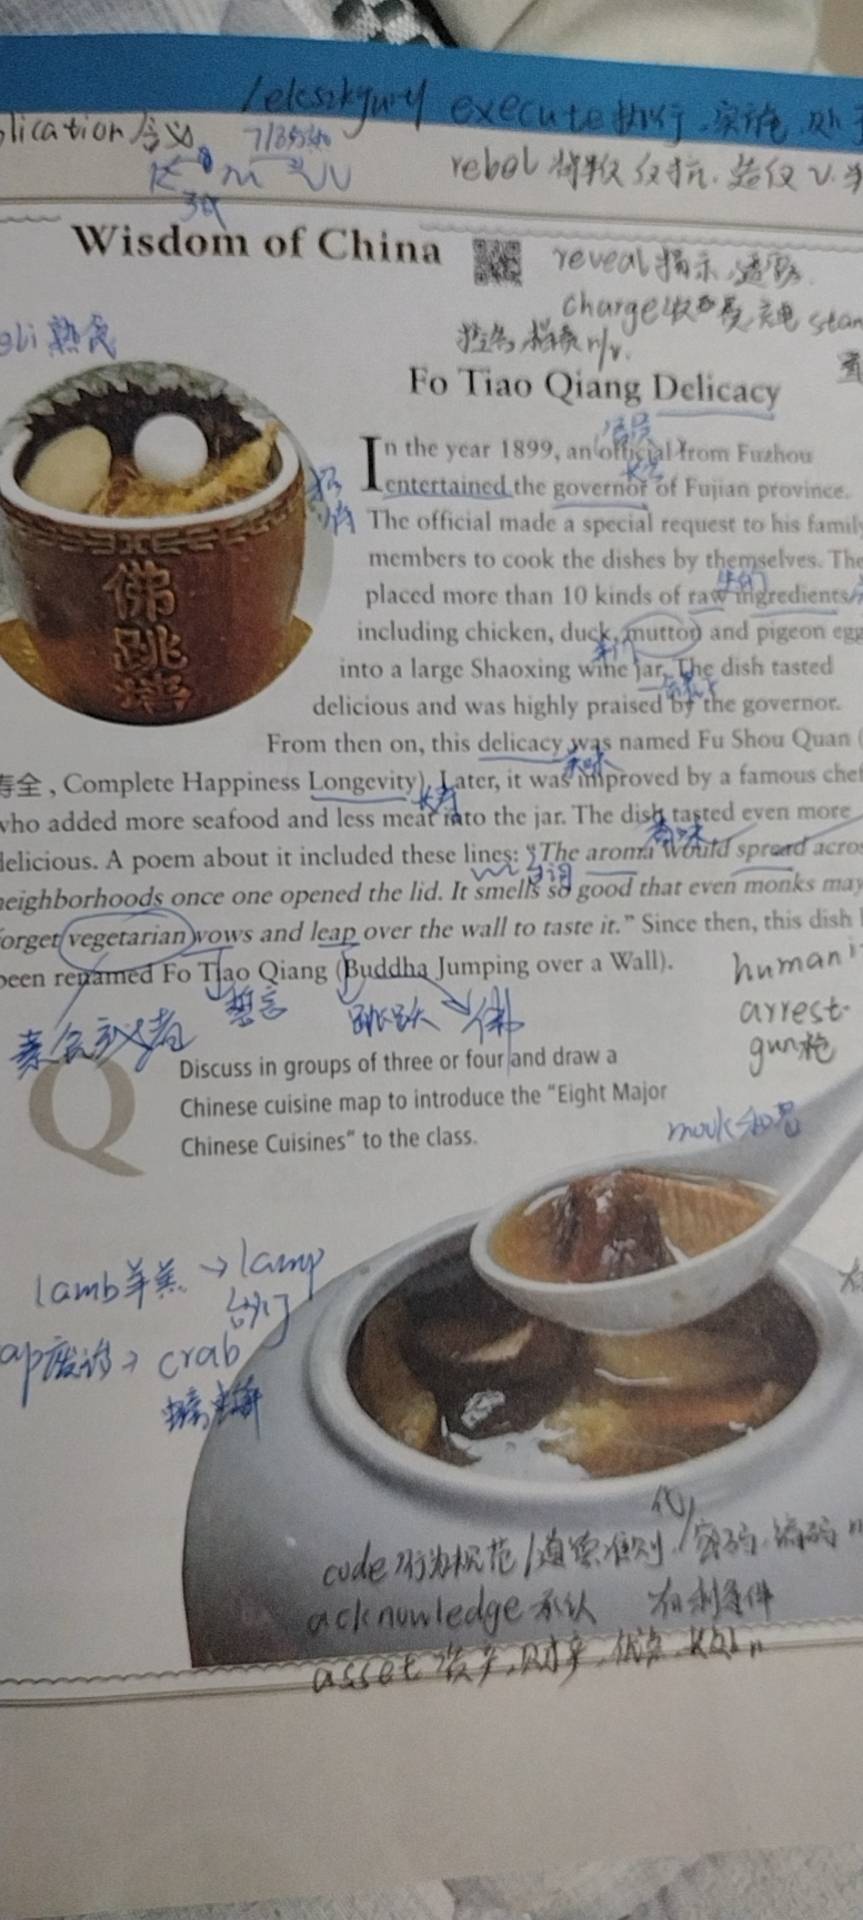 /eksɪkyurɪ/ execute 执行,实施,处
plication 含义
rebel 背叛 反抗.造反 v.
Wisdom of China
reveal 揭示,透露.
charge 收费 充电 stan
控告, 指责 n/v.
eli 熟食
Fo Tiao Qiang Delicacy
官员
In the year 1899, an official from Fuzhou
entertained the governor of Fujian province.
招待
The official made a special request to his family
members to cook the dishes by themselves. The
placed more than 10 kinds of raw ingredients
including chicken, duck, mutton and pigeon egg
into a large Shaoxing wine jar. The dish tasted
delicious and was highly praised by the governor.
佛跳墙
From then on, this delicacy was named Fu Shou Quan (
美味
寿全, Complete Happiness Longevity). Later, it was improved by a famous chef
长寿
who added more seafood and less meat into the jar. The dish tasted even more
香味
delicious. A poem about it included these lines: "The aroma would spread acros
台词
neighborhoods once one opened the lid. It smells so good that even monks may
forget vegetarian vows and leap over the wall to taste it." Since then, this dish
been renamed Fo Tiao Qiang (Buddha Jumping over a Wall).
human
素食主义者 誓言 跳跃 佛
arrest
gun 枪
Q
Discuss in groups of three or four and draw a
Chinese cuisine map to introduce the "Eight Major
Chinese Cuisines" to the class.
lamb 羊羔 → lamp
台灯
ap 废话 → crab
螃蟹
code 行为规范/道德准则/密码,编码 n
acknowledge 承认 有利条件
asset 资产,财产,优点,